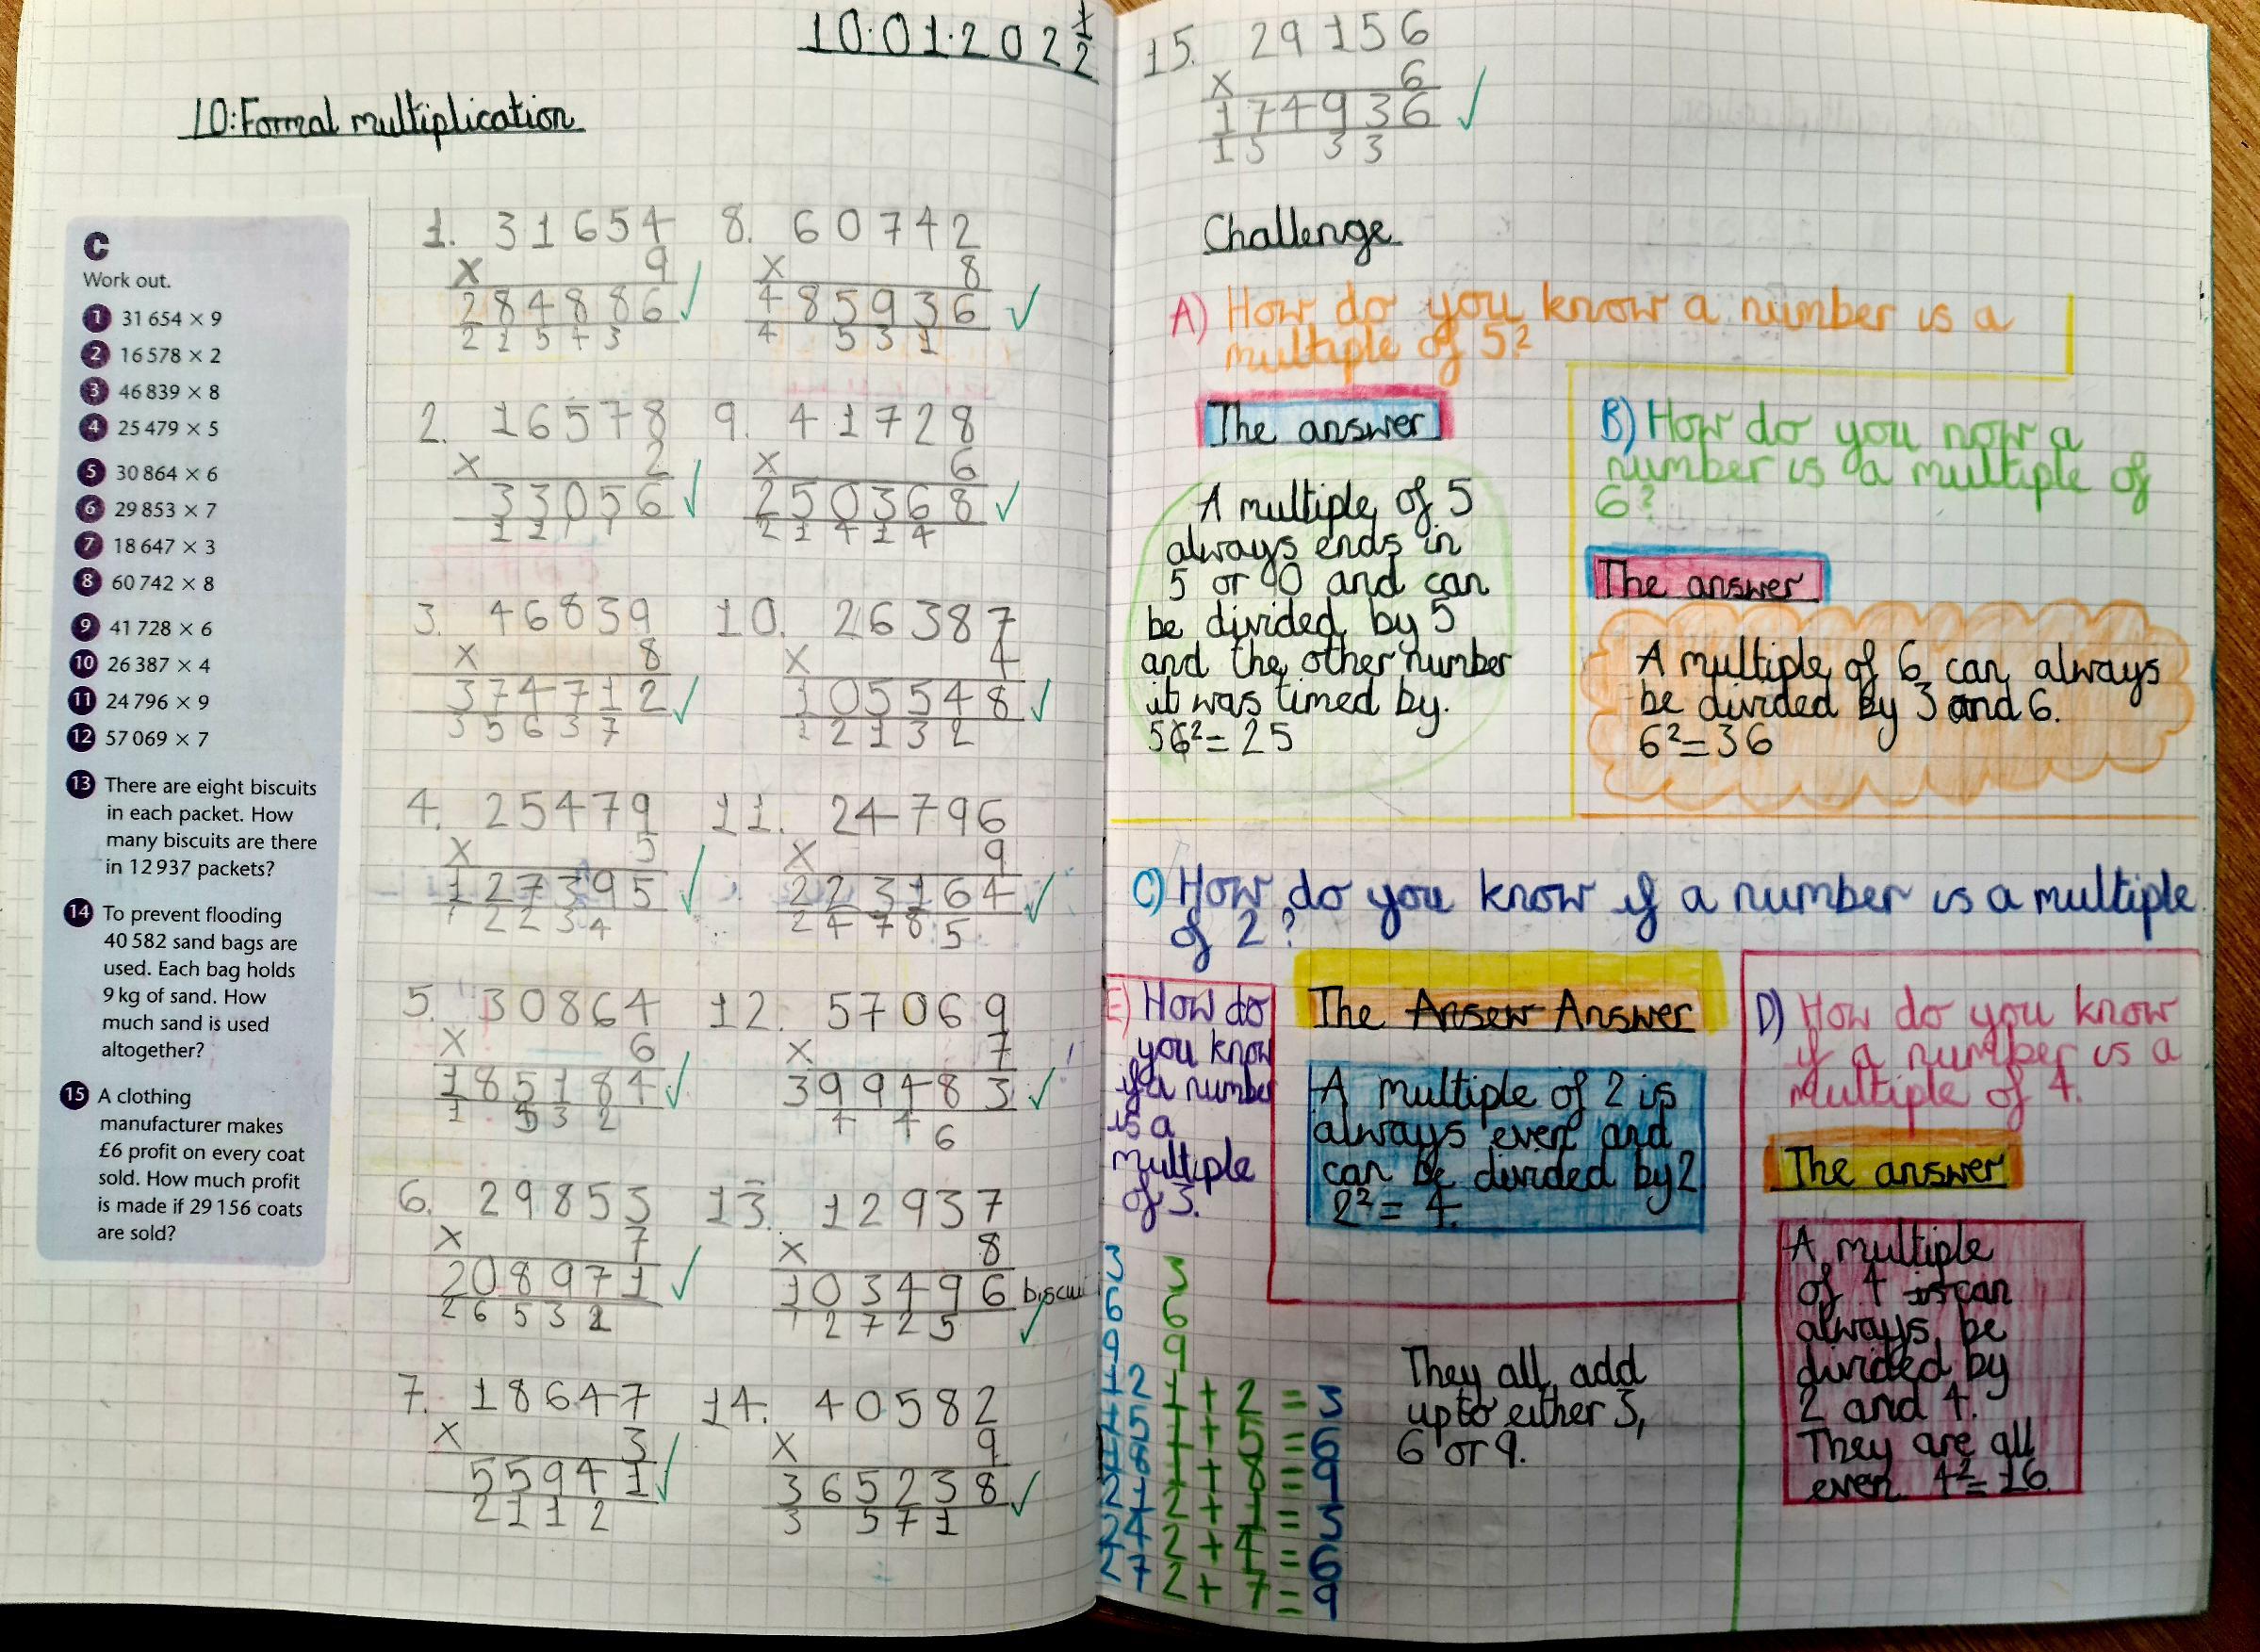 10.01.202½
10: Formal multiplication
C
Work out.
1 31 654 × 9
2 16 578 × 2
3 46 839 × 8
4 25 479 × 5
5 30 864 × 6
6 29 853 × 7
7 18 647 × 3
8 60 742 × 8
9 41 728 × 6
10 26 387 × 4
11 24 796 × 9
12 57 069 × 7
13 There are eight biscuits
in each packet. How
many biscuits are there
in 12 937 packets?
14 To prevent flooding
40 582 sand bags are
used. Each bag holds
9 kg of sand. How
much sand is used
altogether?
15 A clothing
manufacturer makes
£6 profit on every coat
sold. How much profit
is made if 29 156 coats
are sold?
1. 31654
× 9
284886
2 1 5 4 3
2. 16578
× 2
33056
1 1 1 1
3. 46839
× 8
374712
3 5 6 3 7
4. 25479
× 5
127395
1 2 2 3 4
5. 30864
× 6
185184
1 5 3 2
6. 29853
× 7
208971
2 6 5 3 2
7. 18647
× 3
55941
2 1 1 2
8. 60742
× 8
485936
4 5 3 1
9. 41728
× 6
250368
2 1 4 1 4
10. 26387
× 4
105548
1 2 1 3 2
11. 24796
× 9
223164
2 4 7 8 5
12. 57069
× 7
399483
4 4 6
13. 12937
× 8
103496
1 2 7 2 5
14. 40582
× 9
365238
3 5 7 1
15. 29156
× 6
174936
1 5 3 3
Challenge
A) How do you know a number is a
multiple of 5?
The answer
A multiple of 5
always ends in
5 or 0 and can
be divided by 5
and the other number
it was timed by.
5² = 25
B) How do you now a
number is a multiple of
6?
The answer
A multiple of 6 can always
be divided by 3 and 6.
6² = 36
C) How do you know if a number is a multiple
of 2?
The Ansew Answer
A multiple of 2 is
always even and
can be divided by 2
2² = 4.
D) How do you know
if a number is a
multiple of 4.
The answer
A multiple
of 4 is can
always be
divided by
2 and 4.
They are all
even 4² = 16
E) How do
you know
if a number
is a
multiple
of 3.
3 3
6 6
9 9
12 1 + 2 = 3
15 1 + 5 = 6
18 1 + 8 = 9
21 2 + 1 = 3
24 2 + 4 = 6
27 2 + 7 = 9
They all add
up to either 3,
6 or 9.